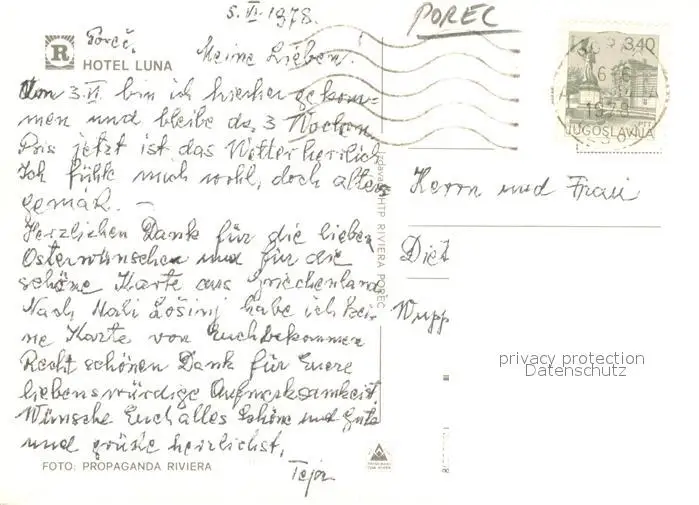 5. VI. 1978.
POREC
Poreč,
HOTEL LUNA
Meine Lieben!
Am 3. VI. bin ich hierher gekom-
men und bleibe da 3 Wochen
Bis jetzt ist das Wetter herrlich
Ich fühle mich wohl, doch alters
gemäß. —
Herzlichen Dank für die lieben
Osterwünschen und für die
schöne Karte aus Griechenland
Nach Mali Lošinj habe ich kei-
ne Karte von Euch bekommen
Recht schönen Dank für Euere
liebenswürdige Aufmerksamkeit.
Wünsche Euch alles Schöne und Gute
und grüße herzlichst,
FOTO: PROPAGANDA RIVIERA
HTP RIVIERA POREČ
3,40
JUGOSLAVIJA
1978
Herrn und Frau
Diet
Wupp
privacy protection
Datenschutz